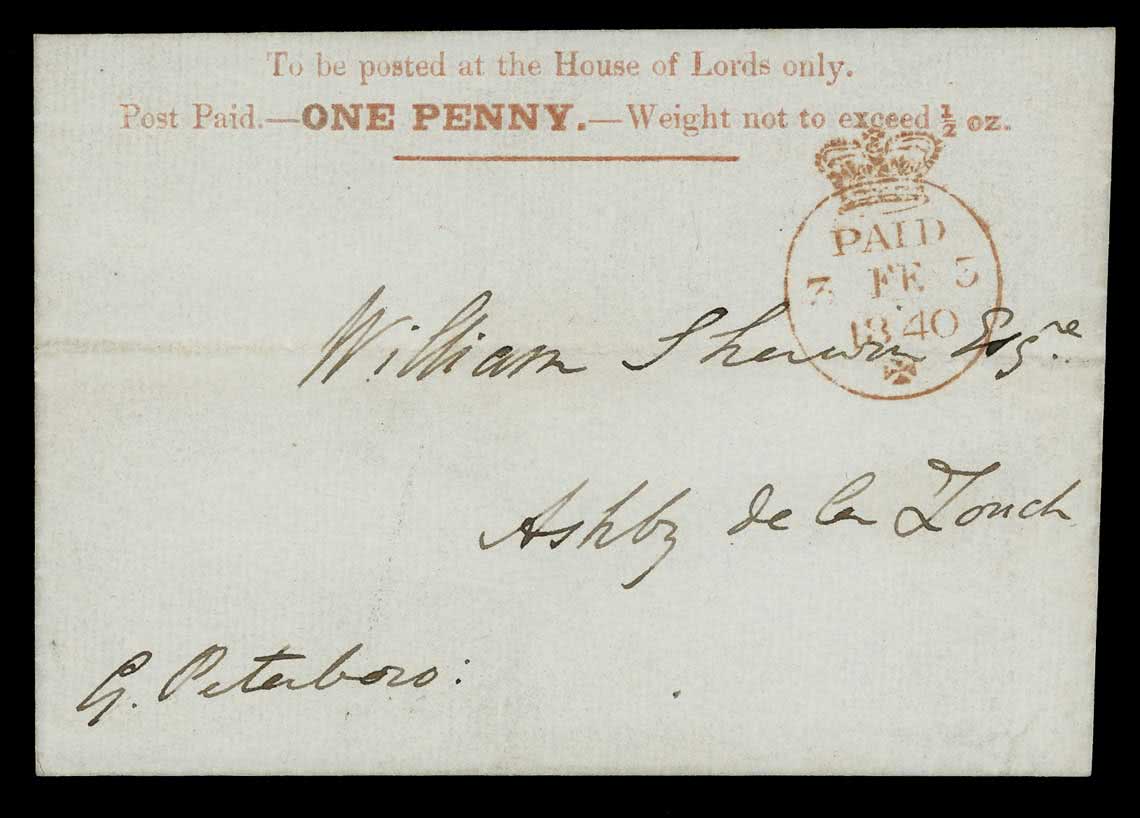 To be posted at the House of Lords only.
Post Paid.—ONE PENNY.—Weight not to exceed ½ oz.
PAID
3 FE 3
1840
William Sherwin Esqre
Ashby de la Zouch
G. Peterboro: